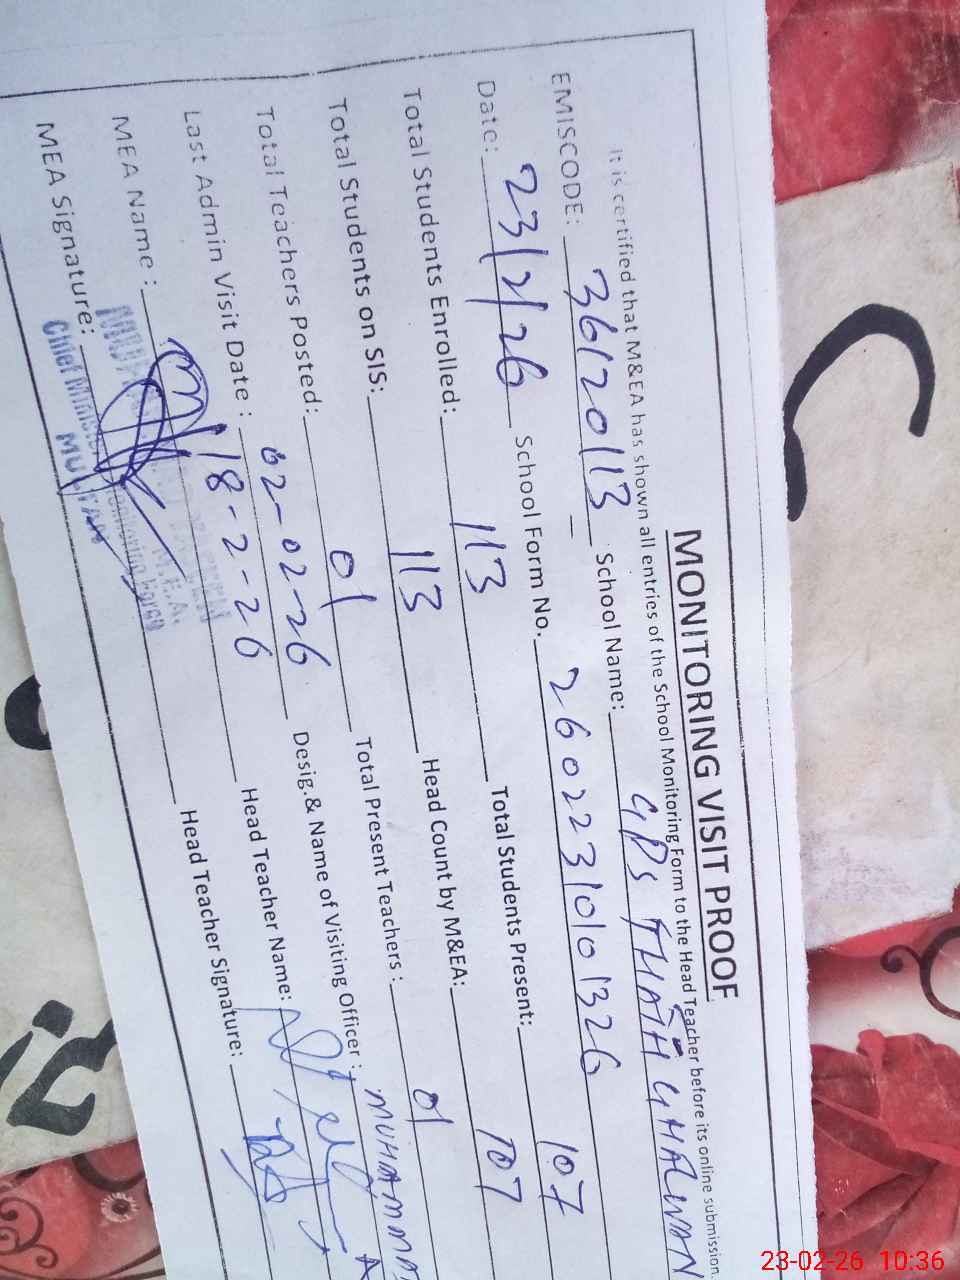 MONITORING VISIT PROOF
It is certified that M&EA has shown all entries of the School Monitoring Form to the Head Teacher before its online submission.
EMISCODE: 36120113 School Name: GPS THATH GHALWAN
Date: 23/2/26 School Form No. 26022310101326
Total Students Enrolled: 113 Total Students Present: 107
Total Students on SIS: 113 Head Count by M&EA: 107
Total Teachers Posted: 01 Total Present Teachers : 01
Last Admin Visit Date : 02-02-26 Desig.& Name of Visiting Officer : MUHAMMAD A
MEA Name : 18-2-26 Head Teacher Name:
MEA Signature: Head Teacher Signature:
M.E.A.
Chief Minister Monitoring Force
MULTAN
23-02-26 10:36